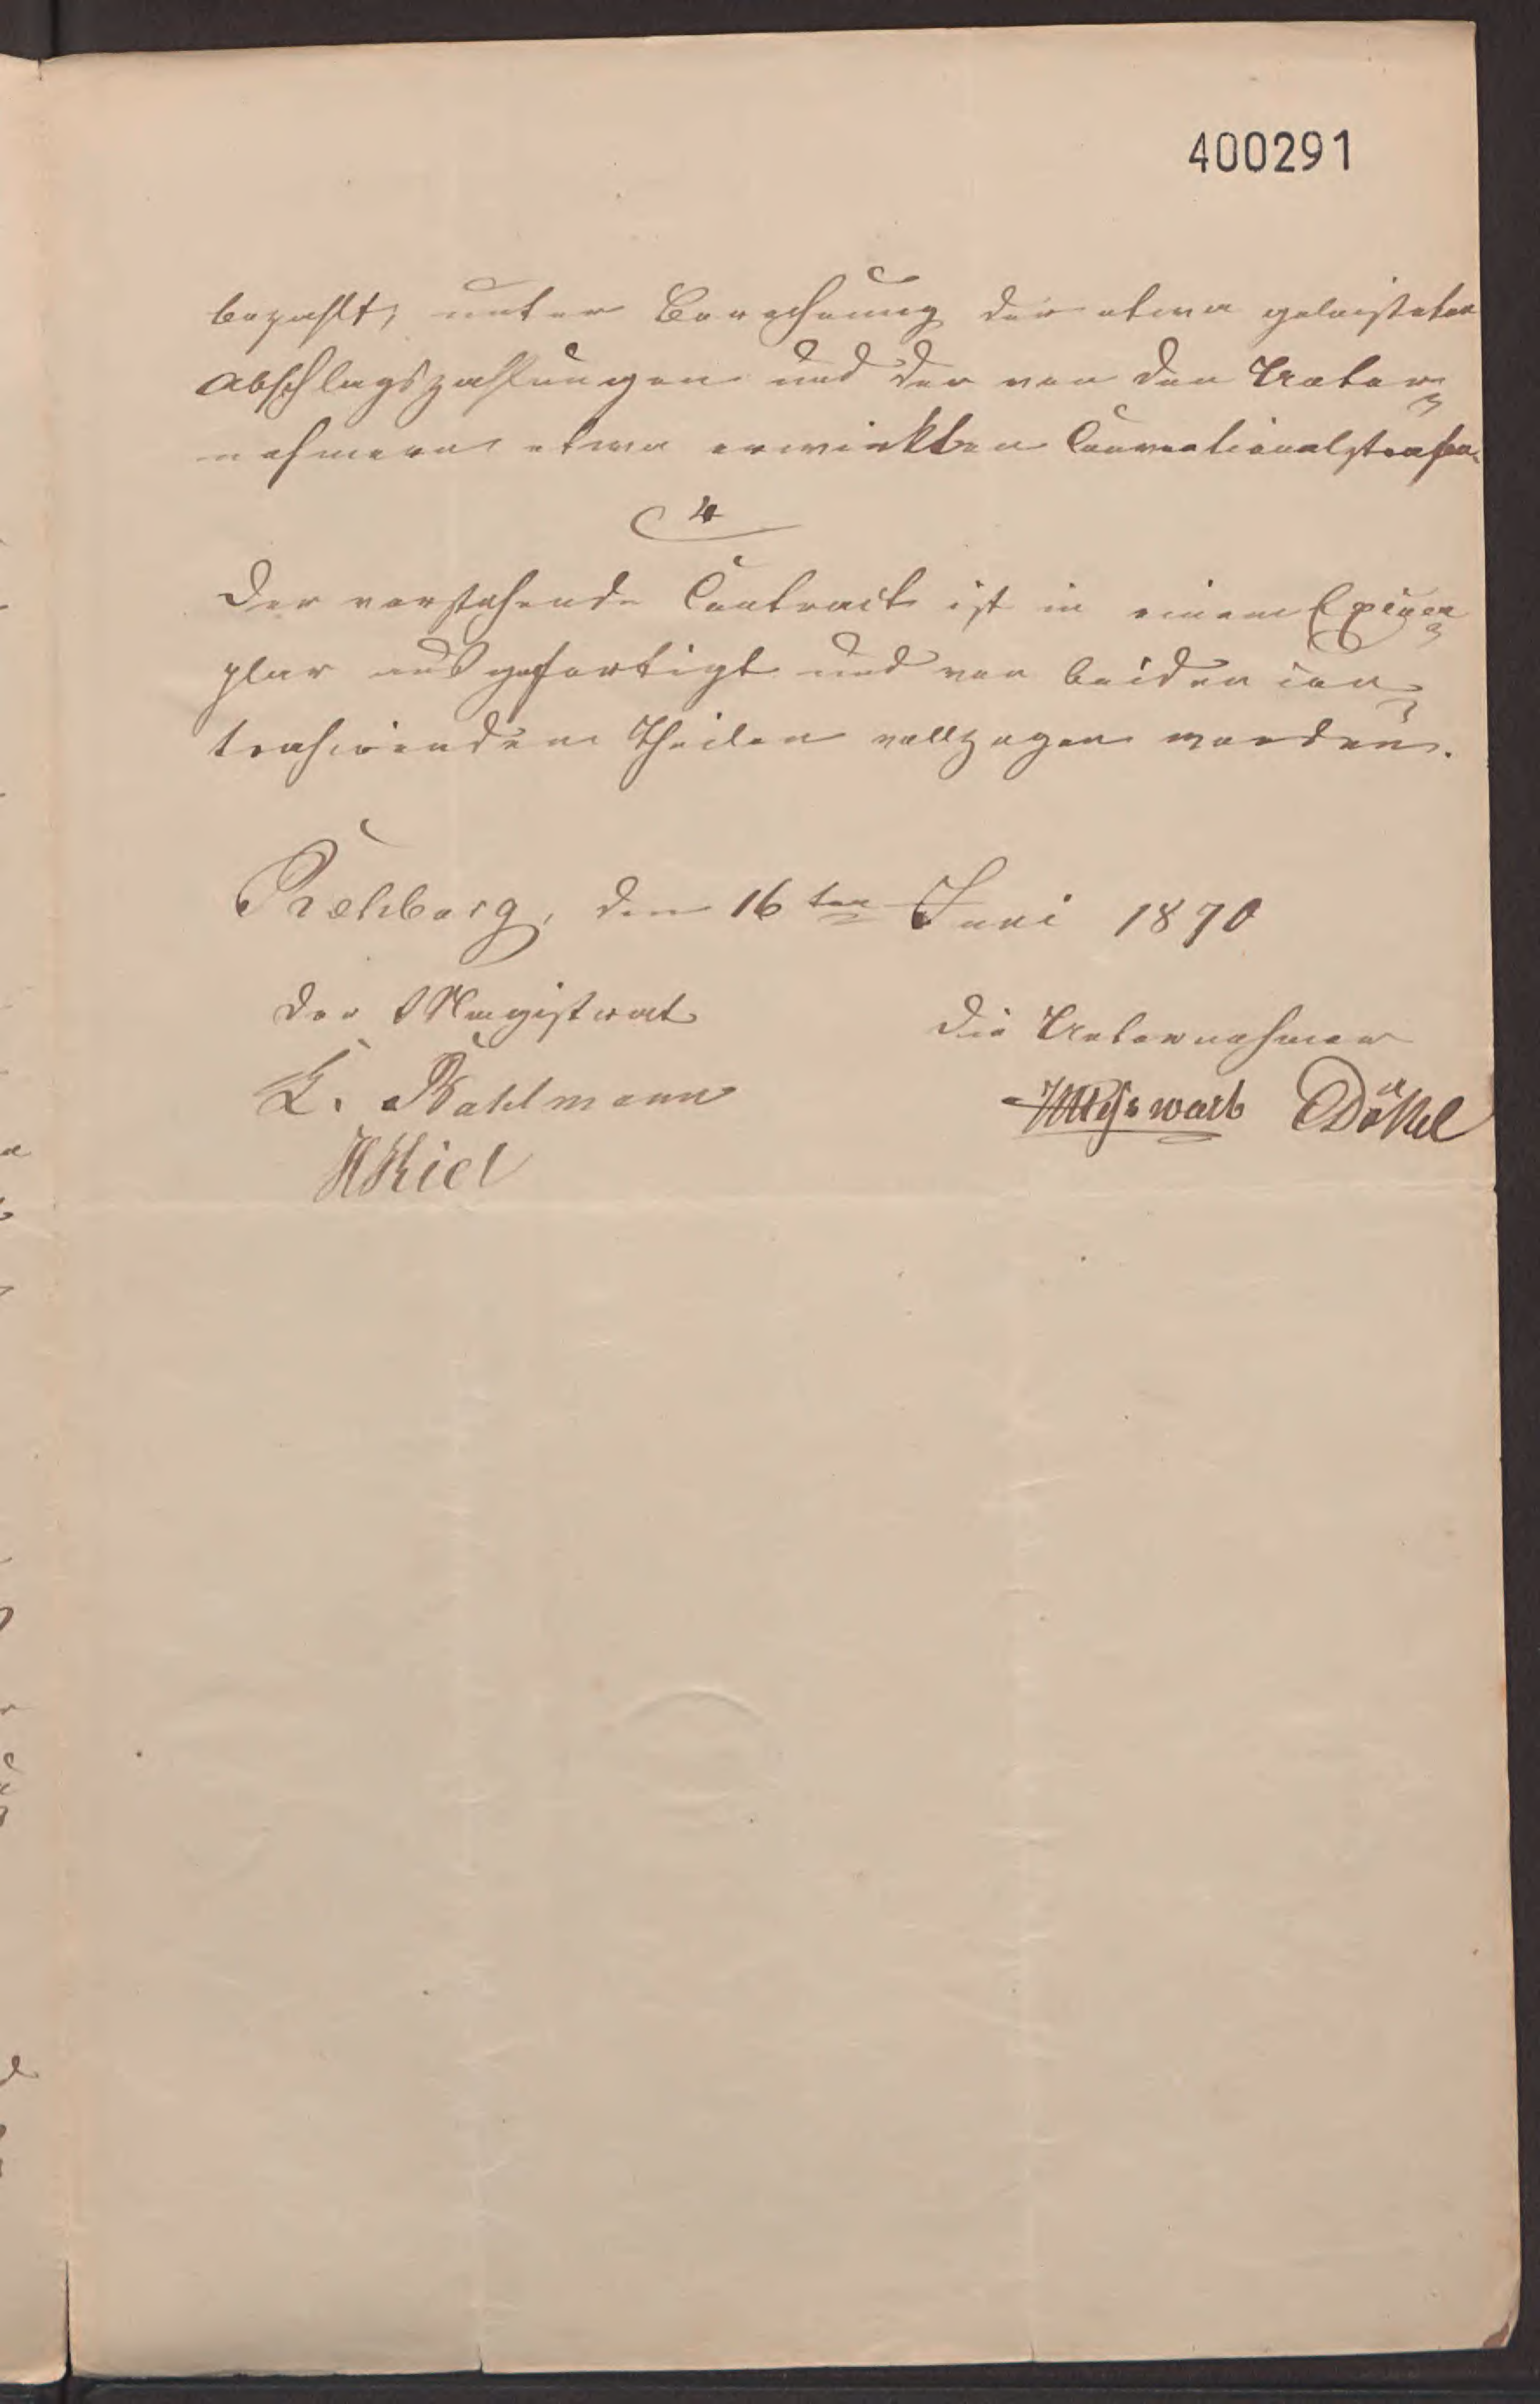 400291
bezahlt, unter Berechnung der etwa geleisteten
Abschlagszahlungen und der von den Unter-
nehmern etwa erwirkten Conventionalstrafen.
4
Der vorstehende Contract ist in einem Exem-
plar ausgefertigt und von beiden con-
trahirenden Theilen vollzogen worden.
Rehburg, den 16ten Juni 1870
Der Magistrat
Die Unternehmer
E. Wahlmann
DöKel
HKiel